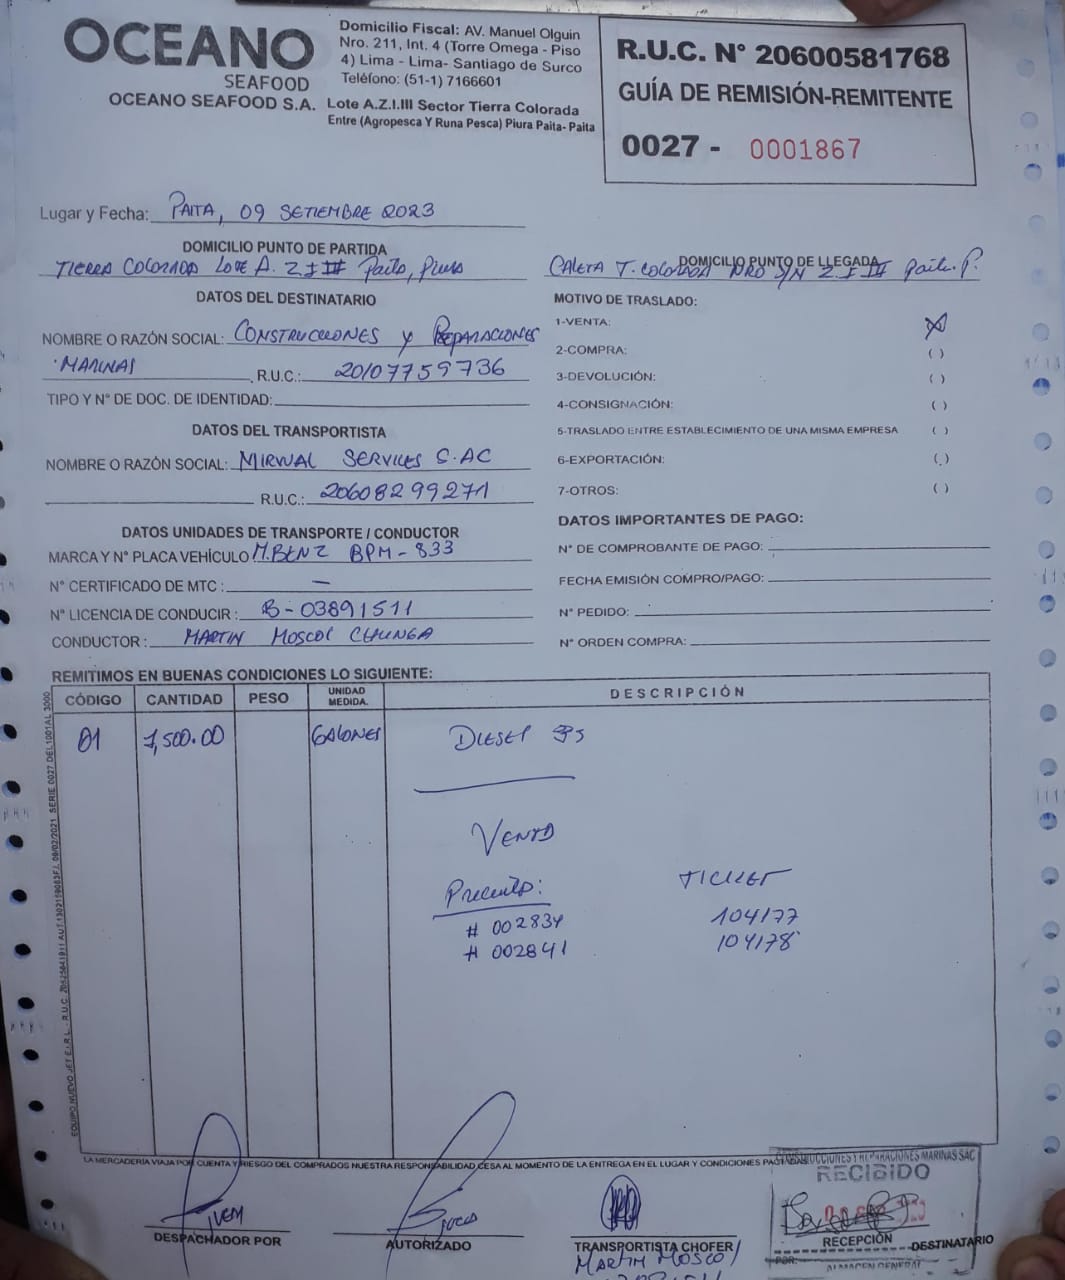 OCEANO
SEAFOOD
OCEANO SEAFOOD S.A.
Domicilio Fiscal: AV. Manuel Olguin
Nro. 211, Int. 4 (Torre Omega - Piso
4) Lima - Lima- Santiago de Surco
Teléfono: (51-1) 7166601
Lote A.Z.I.III Sector Tierra Colorada
Entre (Agropesca Y Runa Pesca) Piura Paita- Paita
R.U.C. N° 20600581768
GUÍA DE REMISIÓN-REMITENTE
0027 - 0001867
Lugar y Fecha: PAITA, 09 SETIEMBRE 2023
DOMICILIO PUNTO DE PARTIDA
TIERRA COLORADA LOTE A. Z I III Paita, Piura
DOMICILIO PUNTO DE LLEGADA
CALETA T. COLORADA NRO S/N Z. I III Paita. P.
DATOS DEL DESTINATARIO
NOMBRE O RAZÓN SOCIAL: CONSTRUCCIONES y REPARACIONES
MARINAS R.U.C.: 20107759736
TIPO Y N° DE DOC. DE IDENTIDAD:
DATOS DEL TRANSPORTISTA
NOMBRE O RAZÓN SOCIAL: MIRWAL SERVICES S.AC
R.U.C.: 20608299271
DATOS UNIDADES DE TRANSPORTE / CONDUCTOR
MARCA Y N° PLACA VEHÍCULO M.BENZ BPM-833
N° CERTIFICADO DE MTC : —
N° LICENCIA DE CONDUCIR : B-03891511
CONDUCTOR : MARTIN MOSCOL CHUNGA
MOTIVO DE TRASLADO:
1-VENTA: X
2-COMPRA: ( )
3-DEVOLUCIÓN: ( )
4-CONSIGNACIÓN: ( )
5-TRASLADO ENTRE ESTABLECIMIENTO DE UNA MISMA EMPRESA ( )
6-EXPORTACIÓN: ( )
7-OTROS: ( )
DATOS IMPORTANTES DE PAGO:
N° DE COMPROBANTE DE PAGO:
FECHA EMISIÓN COMPRO/PAGO:
N° PEDIDO:
N° ORDEN COMPRA:
REMITIMOS EN BUENAS CONDICIONES LO SIGUIENTE:
CÓDIGO CANTIDAD PESO UNIDAD MEDIDA. DESCRIPCIÓN
01 7,500.00 GALONES DIESEL B5
VENTA
Precinto: TICKET
# 002834 104177
# 002841 104178
LA MERCADERÍA VIAJA POR CUENTA Y RIESGO DEL COMPRADOS NUESTRA RESPONSABILIDAD CESA AL MOMENTO DE LA ENTREGA EN EL LUGAR Y CONDICIONES PACTADAS
DESPACHADOR POR
AUTORIZADO
TRANSPORTISTA CHOFER
MARTIN MOSCOL
REPARACIONES MARINAS SAC
RECIBIDO
RECEPCIÓN DESTINATARIO
POR:
ALMACEN GENERAL